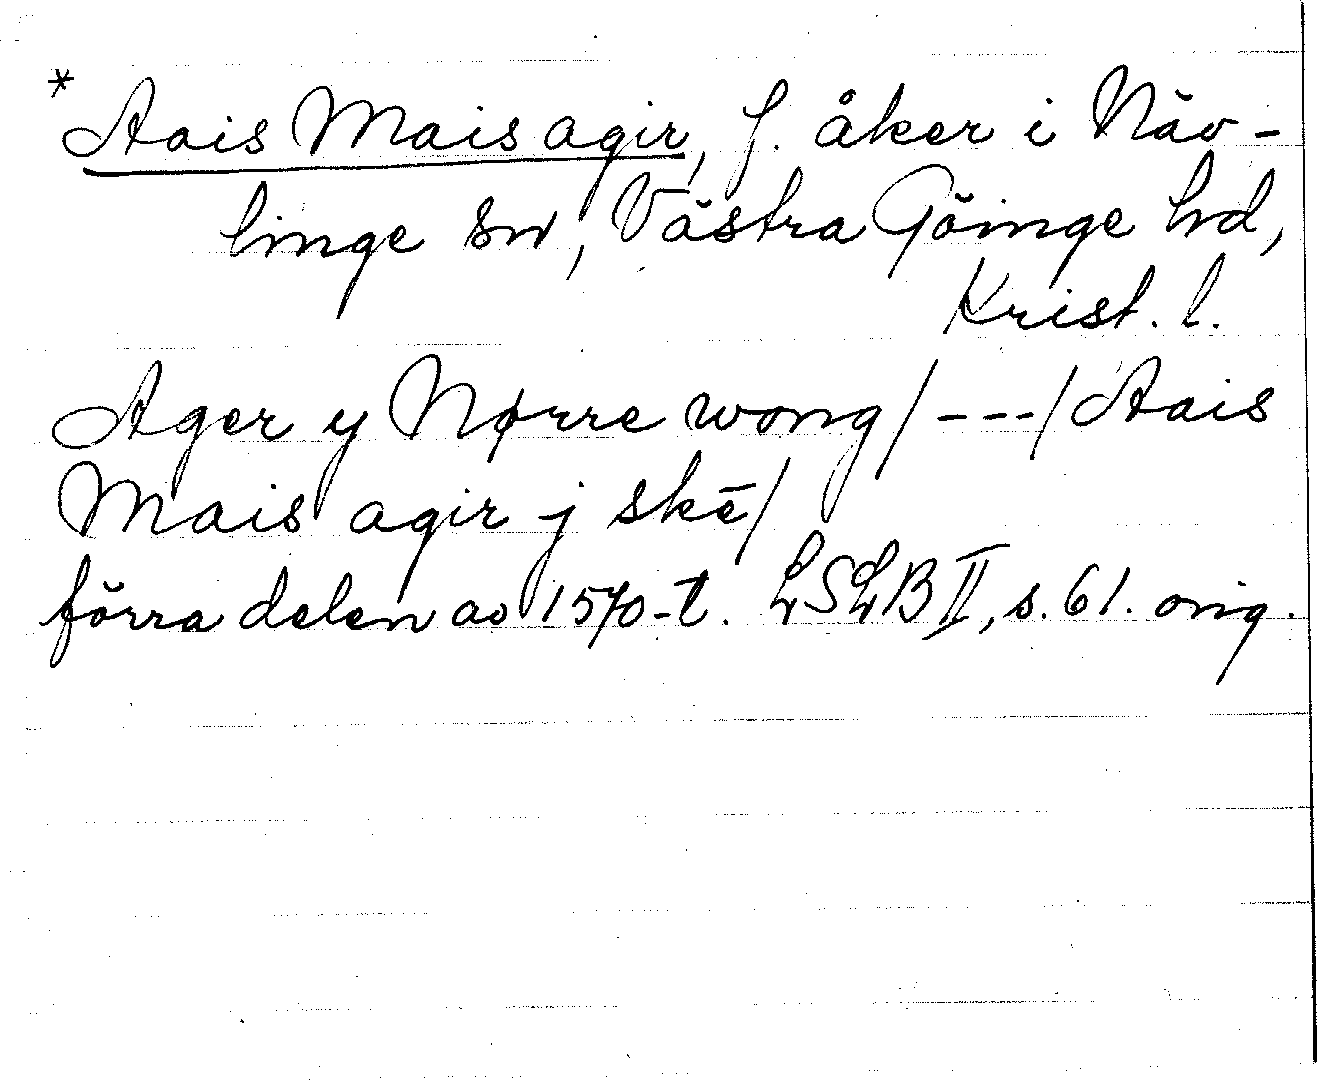 * Aais Mais agir, f. åker i Näv-
linge sn, Västra Göinge hd,
Krist. l.
Ager y Nørre wong/---/Aais
Mais agir j skē/
förra delen av 1570-t. LSLB II, s. 61. orig.